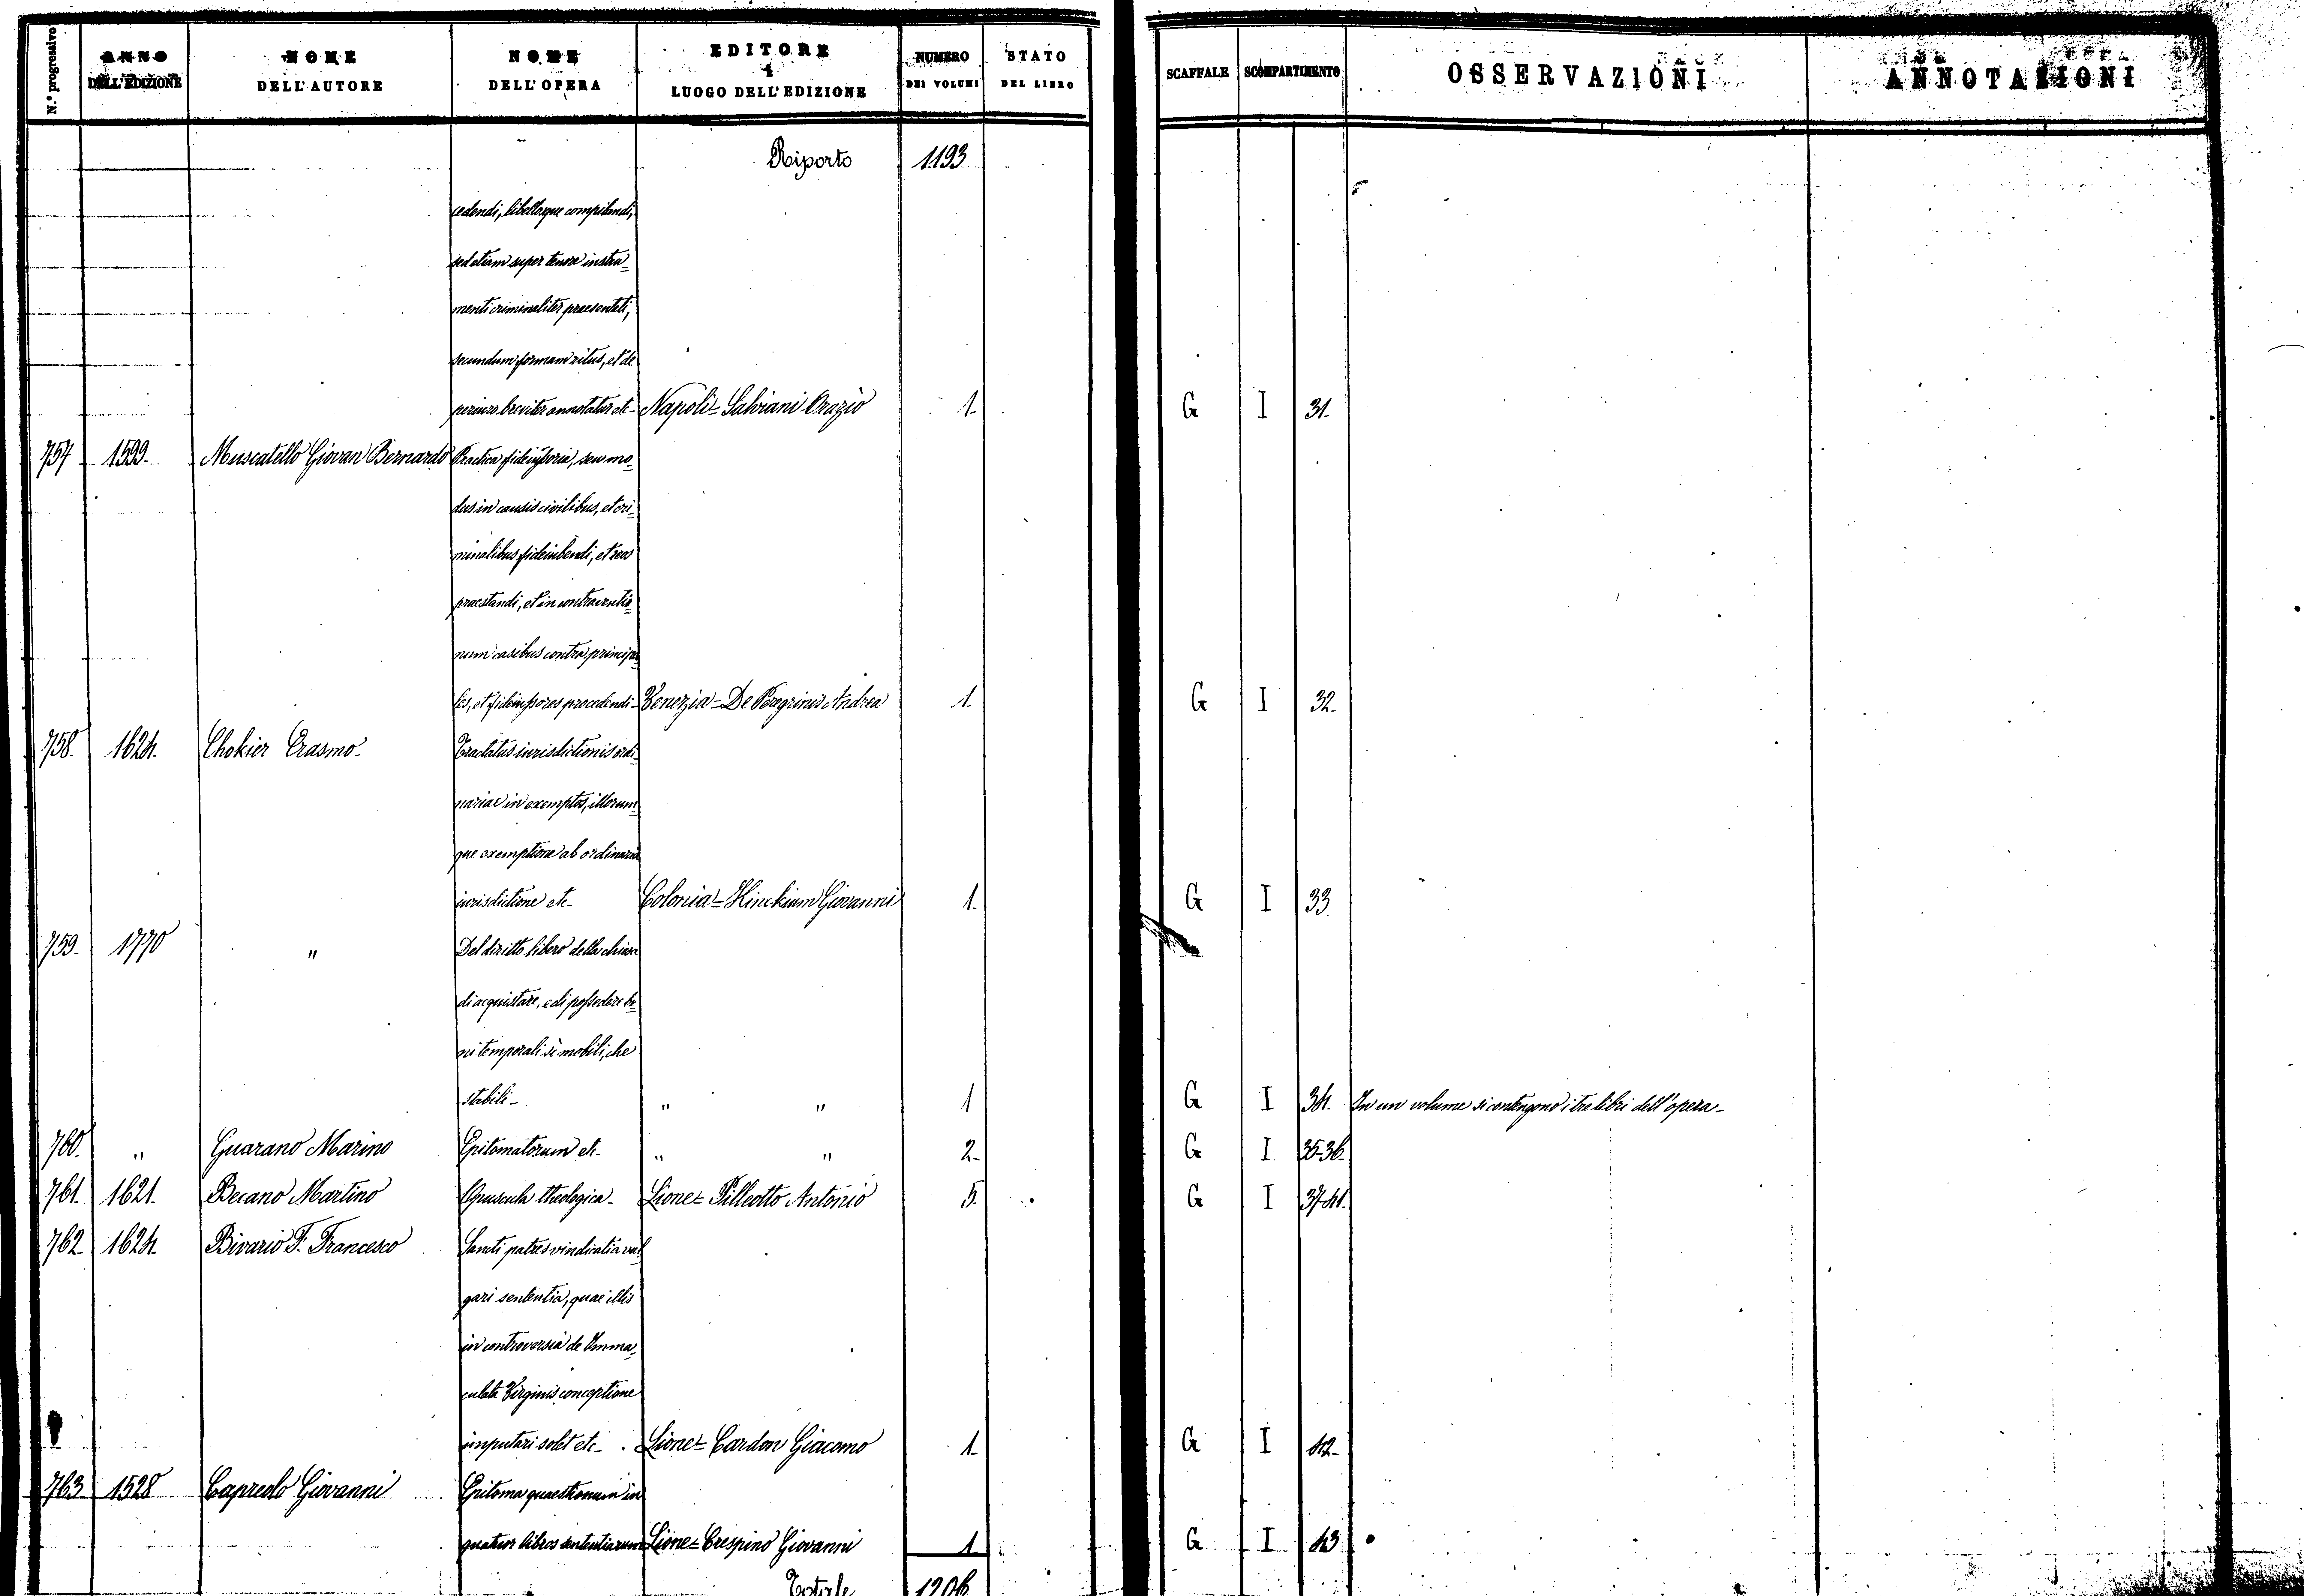 N.º progressivo | ANNO DELL'EDIZIONE | NOME DELL'AUTORE | NOME DELL'OPERA | EDITORE E LUOGO DELL'EDIZIONE | NUMERO DEI VOLUMI | STATO DEL LIBRO | SCAFFALE | SCOMPARTIMENTO | OSSERVAZIONI | ANNOTAZIONI
Riporto 1193
cedendi, libellosque compilandi,
sed etiam super tenore instru-
menti criminaliter praesentati,
secundum formam ritus, et de
periuro breviter annotatur etc- Napoli- Salviani Orazio 1. G I 31.
757 1599. Muscatello Giovan Bernardo Practica fideiussoria, seu mo-
dus in causis civilibus, et cri-
minalibus fideiubendi, et
praestandi, et in contraventio-
num casibus contra principa-
les, et fideiussores procedendi- Venezia- De Peregrinis Andrea 1. G I 32.
758. 1624. Chokier Erasmo- Tractatus iurisdictionis ordi-
nariae in exemptos, illorum-
que exemptione ab ordinaria
iurisdictione etc- Colonia- Kinckium Giovanni 1. G I 33.
759. 1770 " Del diritto libero della chiesa
di acquistare, e di possedere be-
ni temporali sì mobili, che
stabili- " " 1 G I 34. In un volume si contengono i tre libri dell'opera-
760. " Guarano Marino Epitomatorum etc- " " 2. G I 35-36.
761. 1621. Becano Martino Opuscula theologica- Lione- Pilleotto Antonio 5. G I 37-41.
762. 1624. Bivario F. Francesco Sancti patres vindicati a vul-
gari sententia, quae illis
in controversia de Imma-
culata Virginis conceptione
imputari solet etc- Lione- Cardon Giacomo 1. G I 42-
763. 1528 Capreolo Giovanni Epitoma quaestionum in
quatuor libros sententiarum Lione- Crespino Giovanni 1. G I 43
Totale 1206